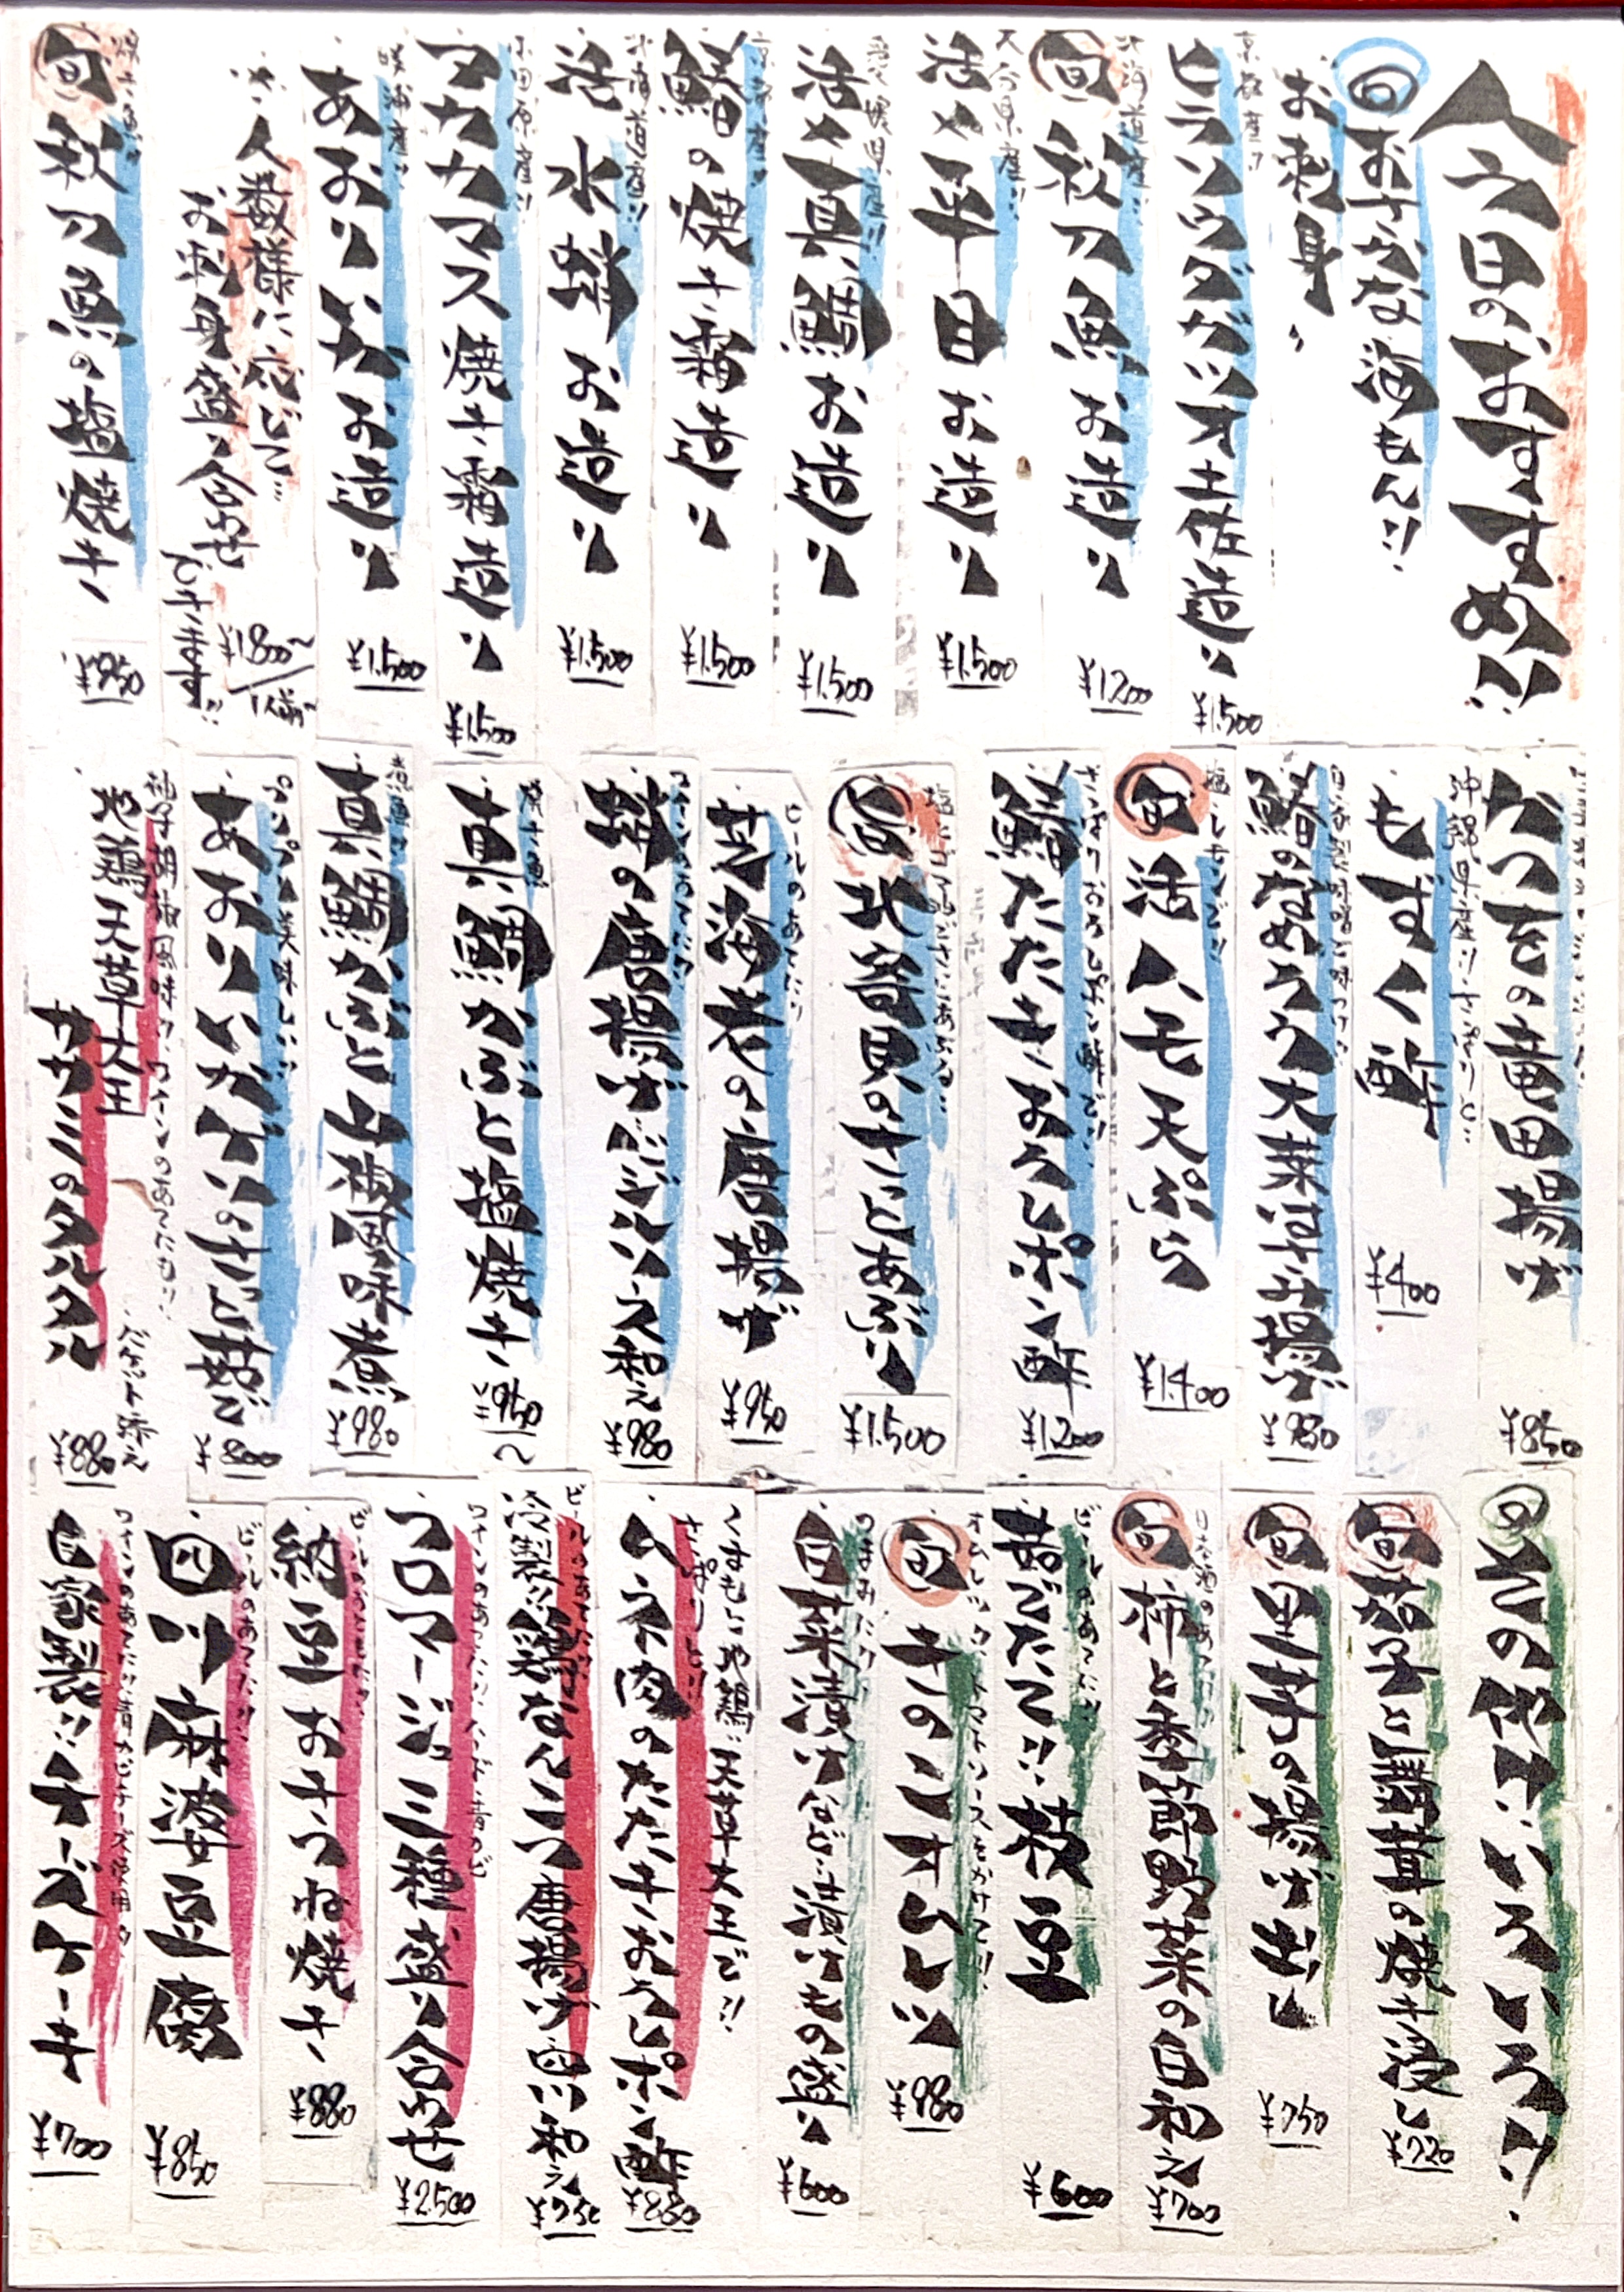 今日のおすすめ!!
旬おさかな海もん!!
お刺身、
京都産!!
ヒラソウダガツオ土佐造り
¥1,500
北海道産!!
旬 秋刀魚お造り
¥1,200
大分県産!!
活〆平目お造り
¥1,500
愛媛県産!!
活〆真鯛お造り
¥1,500
京都産!!
鰆の焼き霜造り
¥1,500
北海道産!!
活 水蛸お造り
¥1,500
小田原産!!
アカカマス焼き霜造り
¥1,500
あおりいかお造り
¥1,500
人数様に応じて!!
お刺身盛り合わせ
できます!!
¥1,800〜/1人前
焼き魚!!
旬 秋刀魚の塩焼き
¥950
かつをの竜田揚げ
¥850
沖縄県産!!さっぱりと!!
もずく酢
¥400
鰆のなめろう大葉はさみ揚げ
塩、レモンで!!
旬 活ハモ天ぷら
¥1,400
さっぱりおろしポン酢で!!
鰆たたきおろしポン酢
¥1,200
旬 北寄貝のさっとあぶり
¥1,500
ビールのあてに!!
芝海老の唐揚げ
¥950
蛸の唐揚げバジルソース和え
¥980
焼き魚
真鯛かぶと塩焼き
¥950〜
煮魚!!
真鯛かぶと山椒風味煮
¥980
プリプリ美味しい!!
あおりいかげいのさっと茹で
¥800
柚子胡椒風味!!ワインのあてにも!!
地鶏天草大王
ササミのタルタル
バケット添え
¥880
旬その他いろいろ!!
旬 茄子と舞茸の焼き浸し
¥720
旬 里芋の揚げ出し
¥750
日本酒のあてに!!
旬 柿と季節野菜の白和え
¥700
ビールのあてに!!
茹でたて!!枝豆
¥600
オムレツに、トマトソースをかけて!!
旬 きのこオムレツ
¥980
つまみに!!
白菜漬けなど…漬けもの盛り
¥600
くまもと地鶏…天草大王で!!
さっぱりと!!
ムネ肉のたたきおろしポン酢
¥880
ビールのあてに!!
冷製!!鶏なんこつ唐揚げ四川和え
¥750
フロマージュ三種盛り合わせ
¥2,500
納豆おきつね焼き
¥880
ビールのあてに!!
四川麻婆豆腐
¥850
自家製!!チーズケーキ
¥700